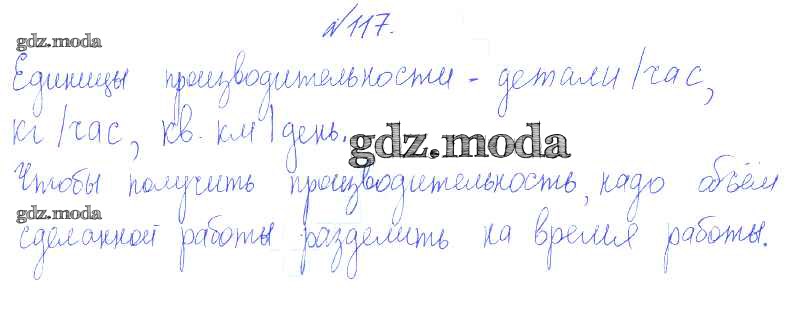 №117.
gdz.moda
Единицы производительности - детали/час,
кг/час, кв. км/день.
gdz.moda
Чтобы получить производительность, надо объём
gdz.moda
сделанной работы разделить на время работы.